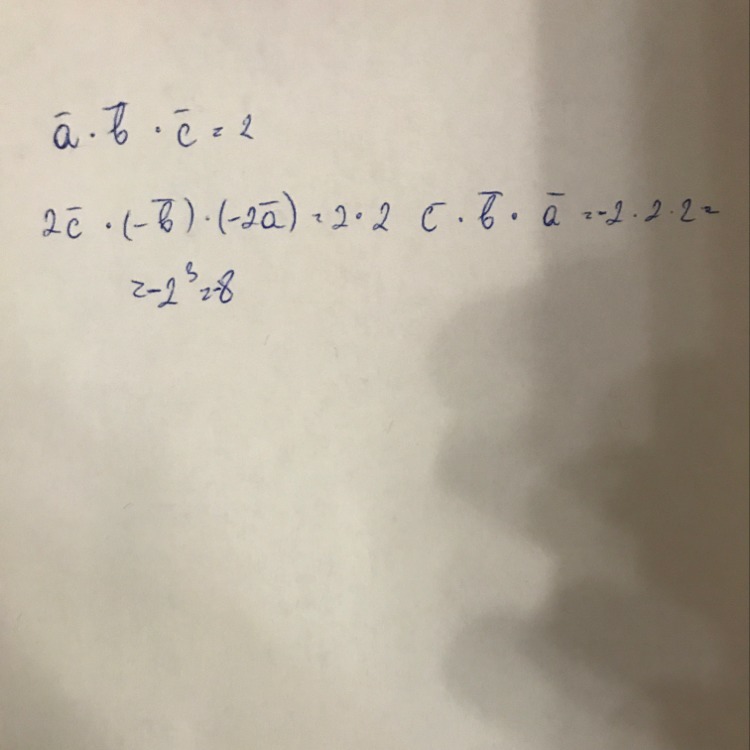 a̅ · b̅ · c̅ = 2
2c̅ · (-b̅) · (-2a̅) = 2 · 2 c̅ · b̅ · a̅ = -2 · 2 · 2 =
= -2³ = -8